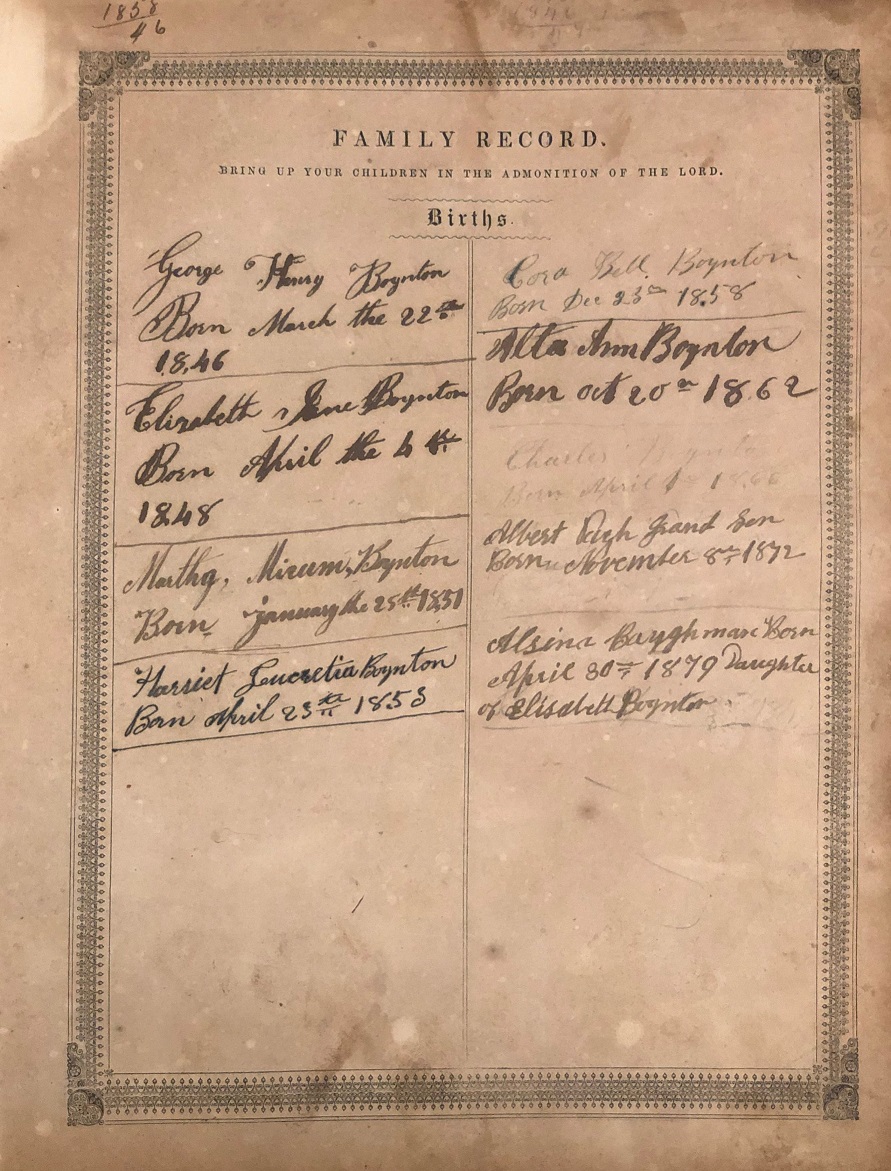 1858
46
FAMILY RECORD.
BRING UP YOUR CHILDREN IN THE ADMONITION OF THE LORD.
Births.
George Henry Boynton
Born March the 22th
1846
Elizabeth Jane Boynton
Born April the 4th
1848
Martha, Boynton
Born January the 25th 1851
Harriet Lucretia Boynton
Born April 23th 1853
Cora Bell Boynton
Born Dec 23th 1858
Alta Ann Boynton
Born oct 20th 1862
Charles Boynton
Born April
Albert Pugh Grand Son
Born November 8th 1872
Alsina Born
April 30th 1879 Daughter
of Elisabeth Boynton